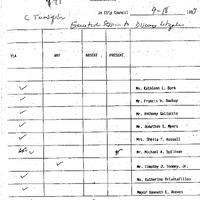 In City Council 9-18
Executive Session to Discuss Litigation
YEA NAY ABSENT PRESENT
Ms. Kathleen L. Born
Mr. Francis H. Duehay
Mr. Anthony Galluccio
Mr. Jonathan S. Myers
Mrs. Sheila T. Russell
Mr. Michael A. Sullivan
Mr. Timothy J. Toomey, Jr.
Ms. Katherine Triantafillou
Mayor Kenneth E. Reeves